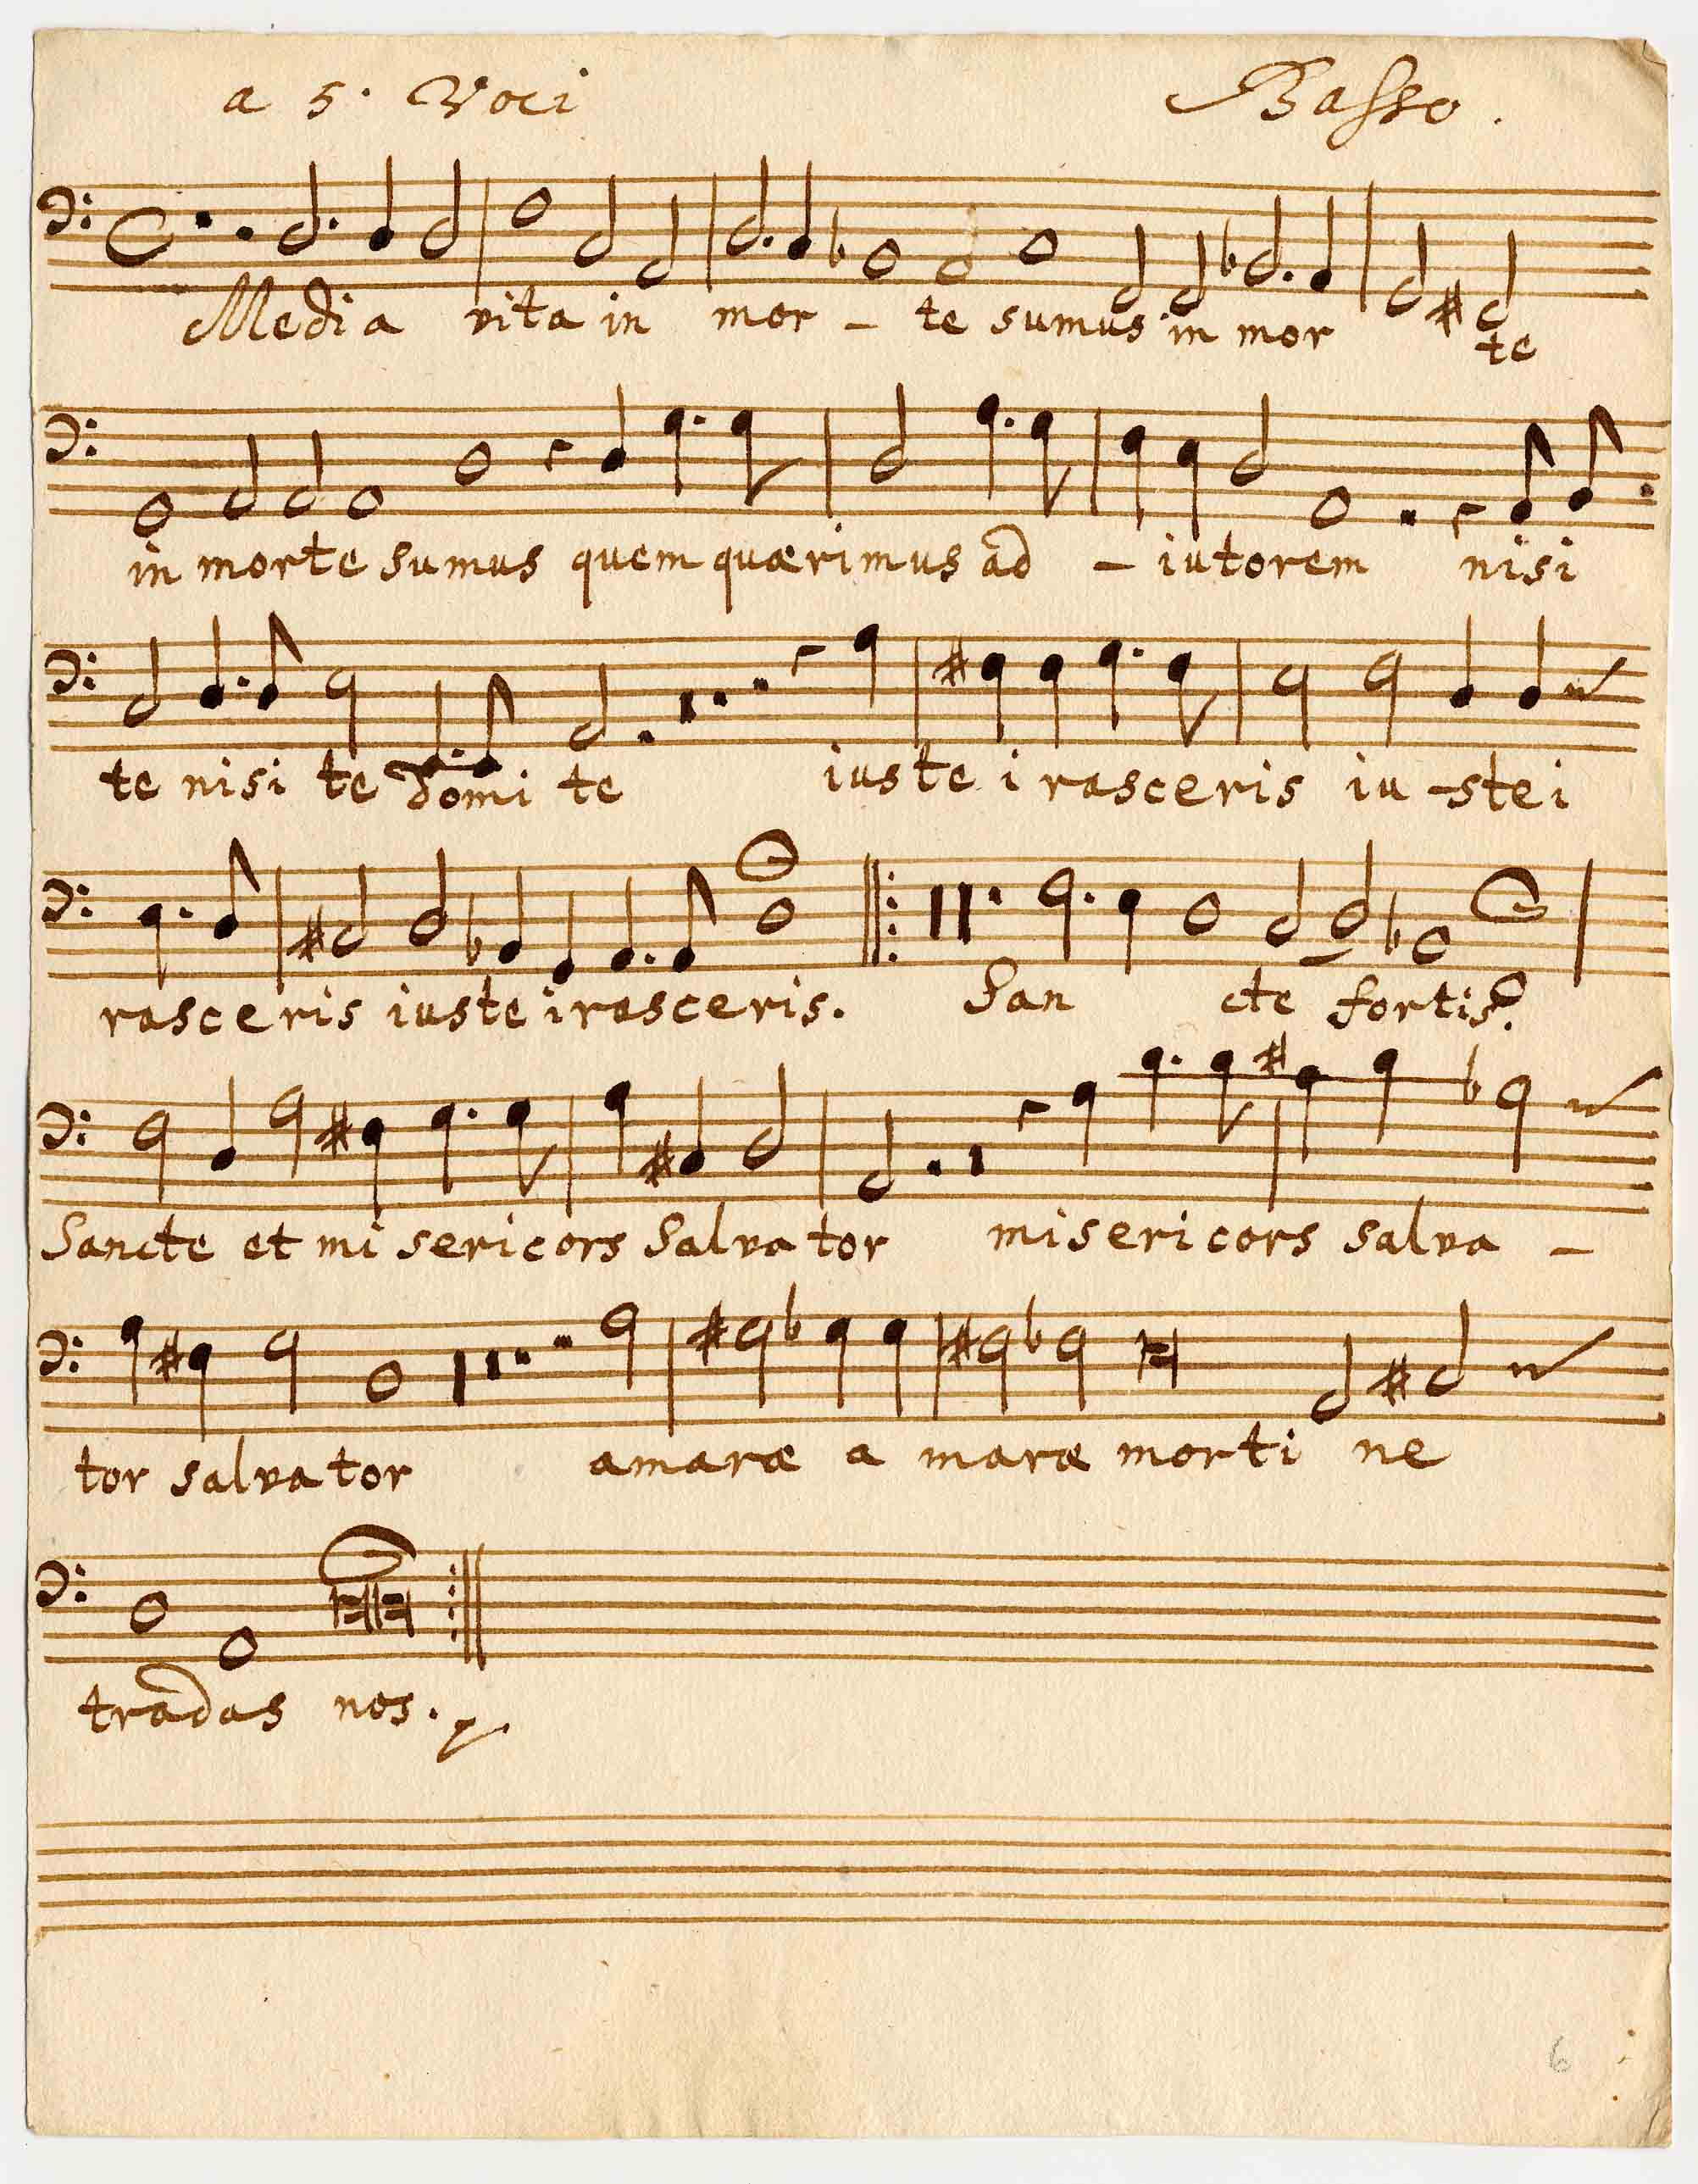 a 5. Voci Basso.
Media vita in mor - te sumus in mor te
in morte sumus quem quærimus ad - iutorem nisi
te nisi te Domi te iuste irasceris iu - ste i
rasceris iuste irasceris. San cte fortis.
Sancte et misericors Salvator misericors salva -
tor salvator amaræ amaræ morti ne
tradas nos.
6